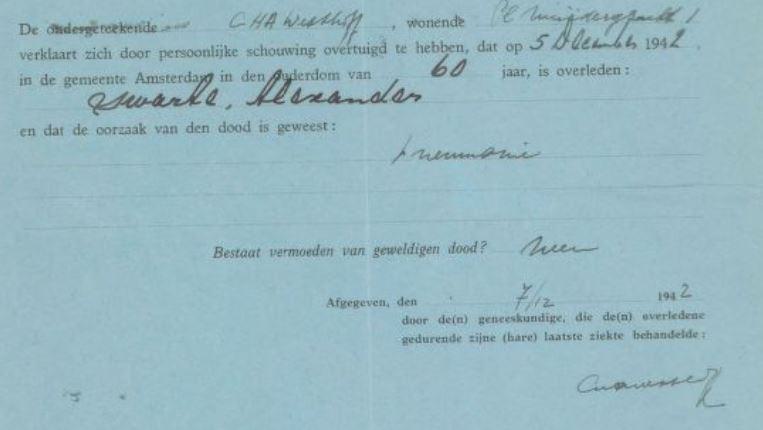 De ondergeteekende CHA Westhoff, wonende PC 1
verklaart zich door persoonlijke schouwing overtuigd te hebben, dat op 5 December 1942,
in de gemeente Amsterdam in den ouderdom van 60 jaar, is overleden:
Zwarte, Alexander
en dat de oorzaak van den dood is geweest:
pneumonie
Bestaat vermoeden van geweldigen dood? Neen
Afgegeven, den 7/12 1942
door de(n) geneeskundige, die de(n) overledene
gedurende zijne (hare) laatste ziekte behandelde: